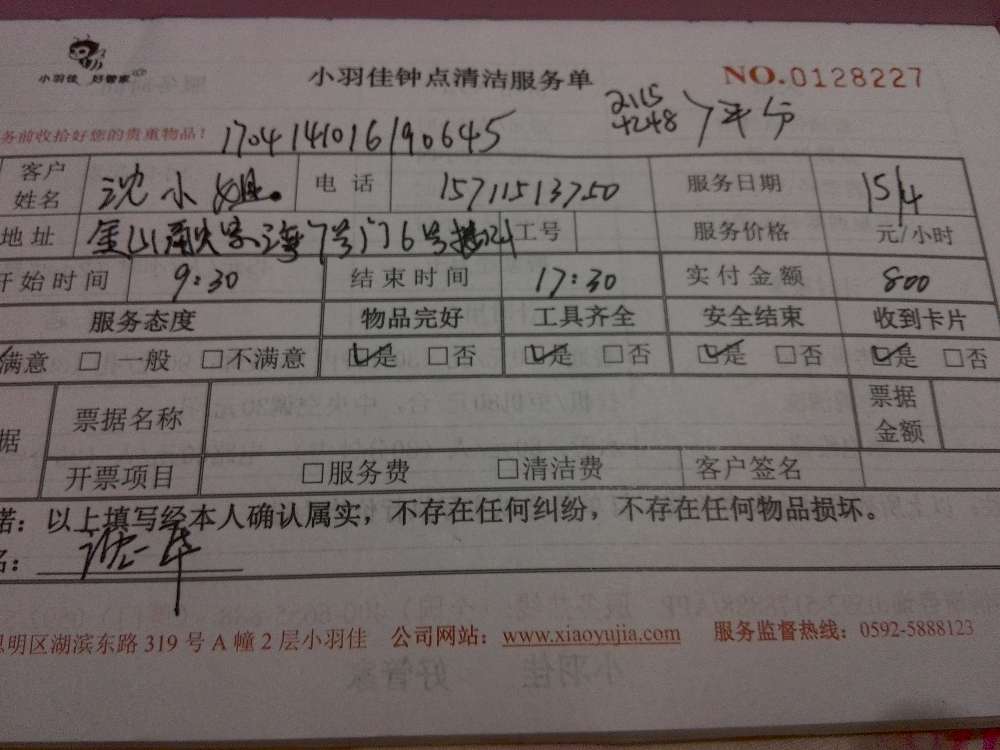 小羽佳 好管家
小羽佳钟点清洁服务单 NO.0128227
2115
+248 >平分
务前收拾好您的贵重物品! 170414101619 0645
客户姓名 沈小姐 电话 15711513750 服务日期 15/4
地址 金山 7号门6号 工号 服务价格 元/小时
开始时间 9:30 结束时间 17:30 实付金额 800
服务态度 物品完好 工具齐全 安全结束 收到卡片
满意 □ 一般 □不满意 ☑是 □否 ☑是 □否 ☑是 □否 ☑是 □否
据 票据名称 票据金额
开票项目 □服务费 □清洁费 客户签名
诺：以上填写经本人确认属实，不存在任何纠纷，不存在任何物品损坏。
名：
思明区湖滨东路 319 号 A 幢 2 层小羽佳 公司网站：www.xiaoyujia.com 服务监督热线：0592-5888123
小羽佳 好管家